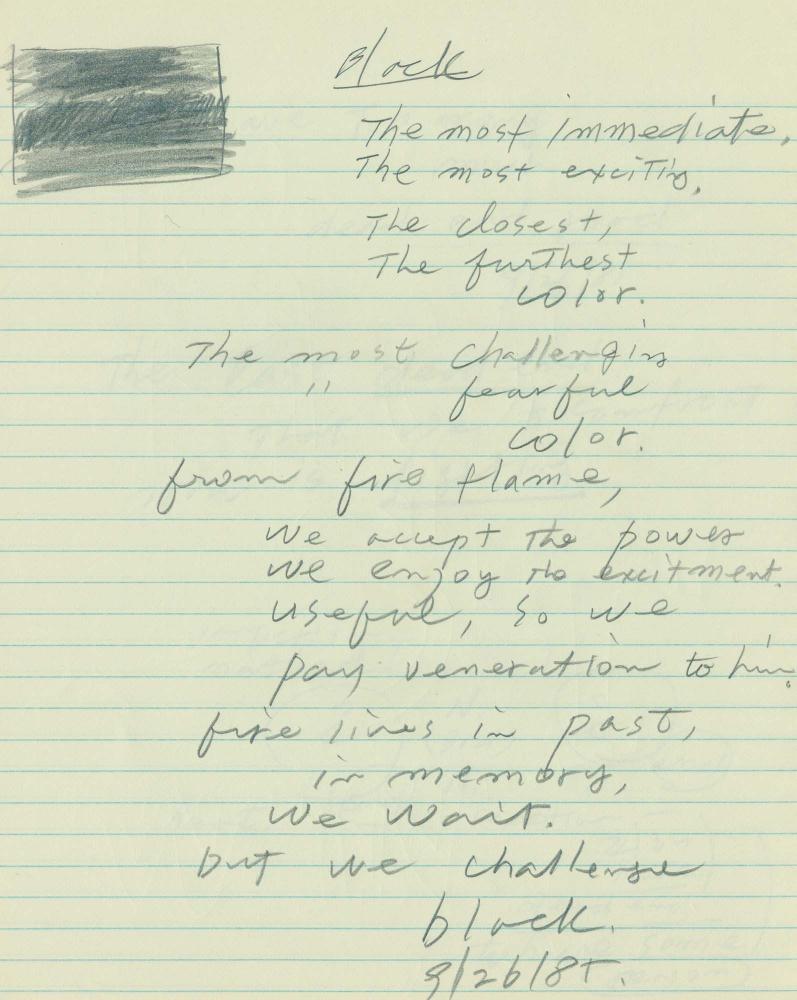 Black
The most immediate,
The most exciting,
The closest,
The furthest
color.
The most challenging
" fearful
color.
from fire flame,
We accept the power
We enjoy the excitment.
useful, so we
pay veneration to him.
fire lives in past,
in memory,
We Wait.
but we challenge
black.